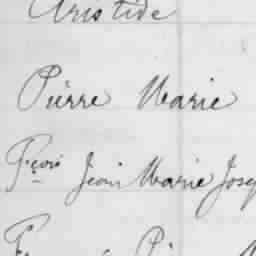 Aristide
Pierre Marie
Fçois Jean Marie Jose